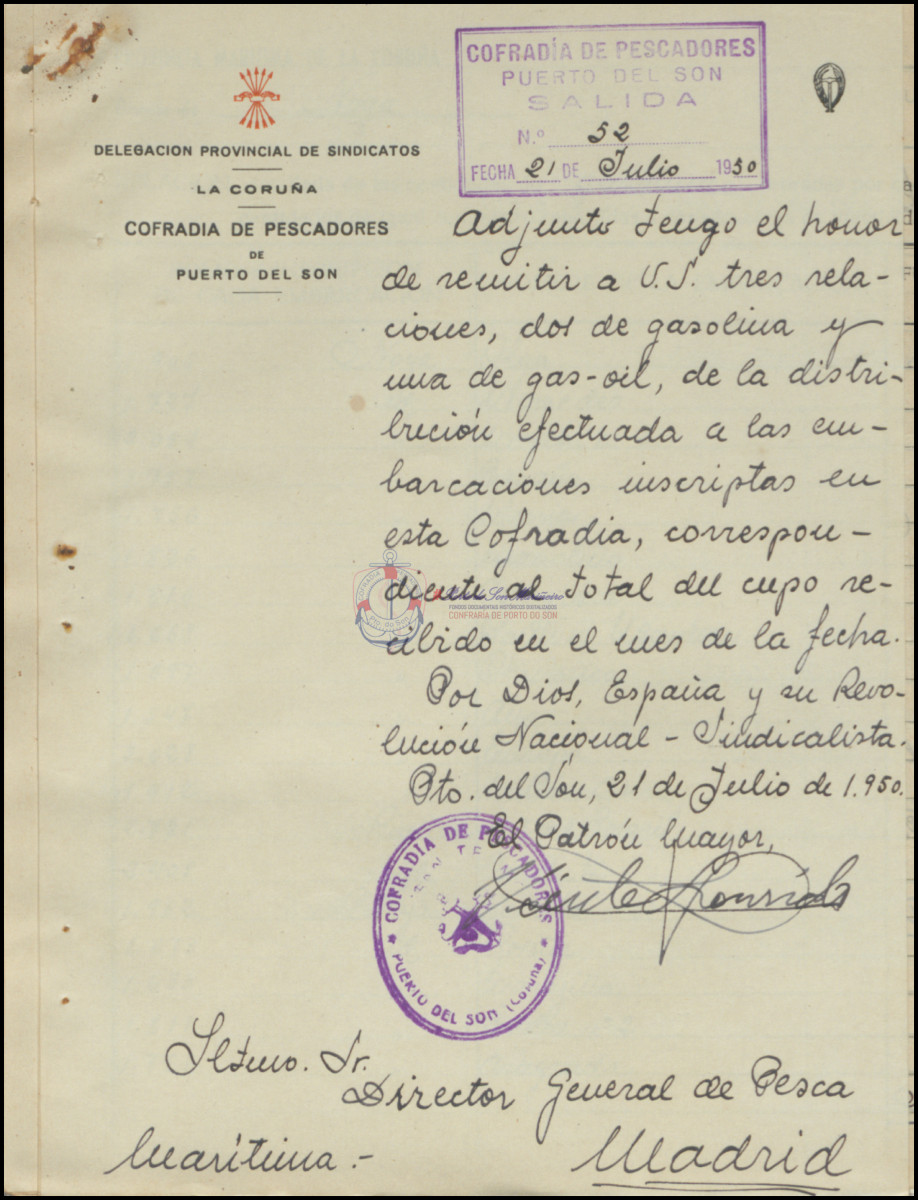 COFRADÍA DE PESCADORES
PUERTO DEL SON
SALIDA
N.º 52
FECHA 21 DE Julio 1950
DELEGACION PROVINCIAL DE SINDICATOS
LA CORUÑA
COFRADIA DE PESCADORES
DE
PUERTO DEL SON
Adjunto tengo el honor
de remitir a V.S. tres rela-
ciones, dos de gasolina y
una de gas-oil, de la distri-
bución efectuada a las em-
barcaciones inscriptas en
esta Cofradia, correspon-
diente al total del cupo re-
cibido en el mes de la fecha.
Por Dios, España y su Revo-
lución Nacional-Sindicalista.
Pto. del Son, 21 de Julio de 1.950.
El Patrón Mayor,
COFRADÍA DE PESCADORES
PUERTO DEL SON (Coruña)
Iltmo. Sr.
Director General de Pesca
Marítima.-
Madrid
FONDOS DOCUMENTAIS HISTÓRICOS DIXITALIZADOS
CONFRARÍA DE PORTO DO SON